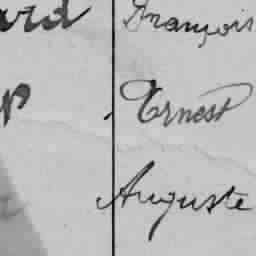 ard François
p Ernest
Auguste